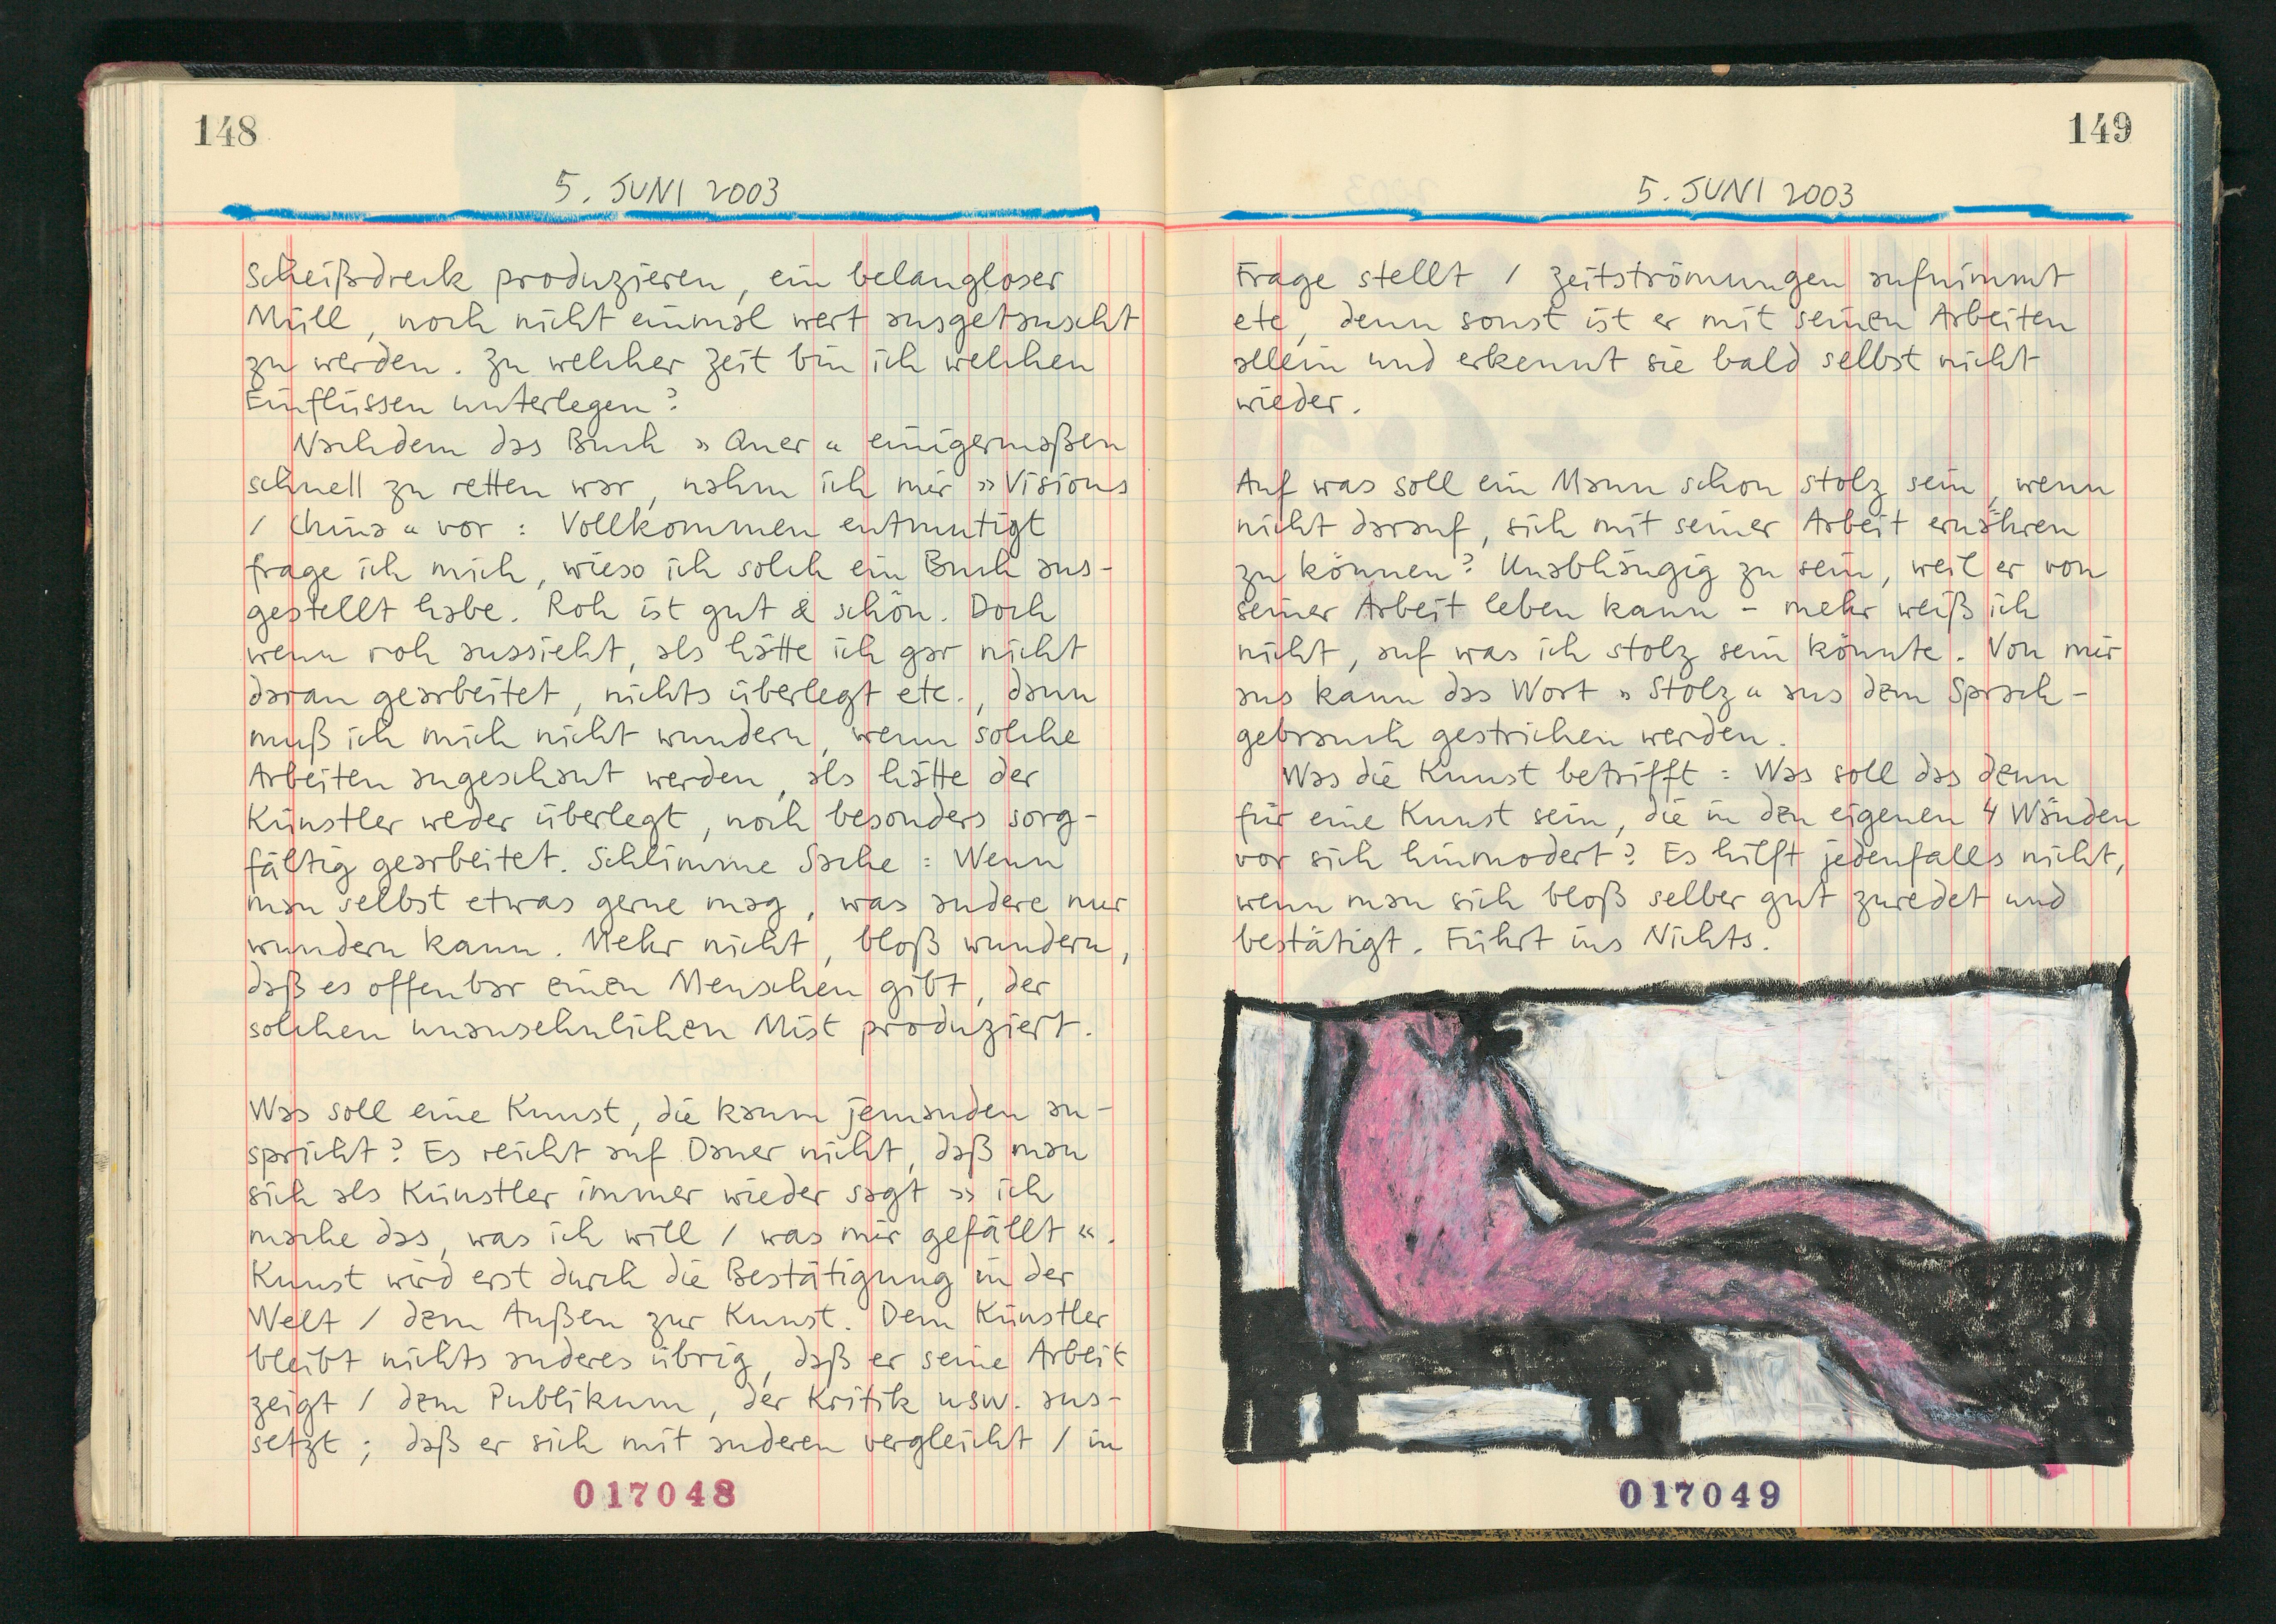 148
5. JUNI 2003
Scheißdreck produzieren, ein belangloser
Müll, noch nicht einmal wert ausgetauscht
zu werden. Zu welcher Zeit bin ich welchen
Einflüssen unterlegen?
Nachdem das Buch »Quer« einigermaßen
schnell zu retten war, nahm ich mir »Visions
/ China« vor: Vollkommen entmutigt
frage ich mich, wieso ich solch ein Buch aus-
gestellt habe. Roh ist gut & schön. Doch
wenn roh aussieht, als hätte ich gar nicht
daran gearbeitet, nichts überlegt etc., dann
muß ich mich nicht wundern, wenn solche
Arbeiten angeschaut werden, als hätte der
Künstler weder überlegt, noch besonders sorg-
fältig gearbeitet. Schlimme Sache: Wenn
man selbst etwas gerne mag, was andere nur
wundern kann. Mehr nicht, bloß wundern,
daß es offenbar einen Menschen gibt, der
solchen unansehnlichen Mist produziert.
Was soll eine Kunst, die kaum jemanden an-
spricht? Es reicht auf Dauer nicht, daß man
sich als Künstler immer wieder sagt »ich
mache das, was ich will / was mir gefällt«.
Kunst wird erst durch die Bestätigung in der
Welt / dem Außen zur Kunst. Dem Künstler
bleibt nichts anderes übrig, daß er seine Arbeit
zeigt / dem Publikum, der Kritik usw. aus-
setzt; daß er sich mit anderen vergleicht / in
017048
149
5. JUNI 2003
Frage stellt / Zeitströmungen aufnimmt
etc, denn sonst ist er mit seinen Arbeiten
allein und erkennt sie bald selbst nicht
wieder.
Auf was soll ein Mann schon stolz sein, wenn
nicht darauf, sich mit seiner Arbeit ernähren
zu können? Unabhängig zu sein, weil er von
seiner Arbeit leben kann – mehr weiß ich
nicht, auf was ich stolz sein könnte. Von mir
aus kann das Wort »Stolz« aus dem Sprach-
gebrauch gestrichen werden.
Was die Kunst betrifft: Was soll das denn
für eine Kunst sein, die in den eigenen 4 Wänden
vor sich hinmodert? Es hilft jedenfalls nicht,
wenn man sich bloß selber gut zuredet und
bestätigt. Führt ins Nichts.
017049